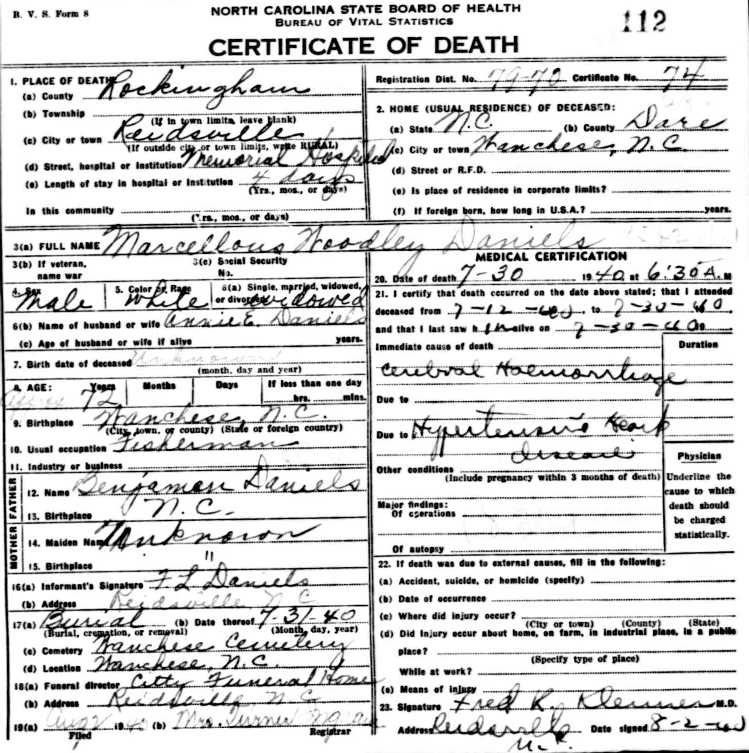 R. V. S. Form 8
NORTH CAROLINA STATE BOARD OF HEALTH
BUREAU OF VITAL STATISTICS
112
CERTIFICATE OF DEATH
Registration Dist. No. 79-70 Certificate No. 74
1. PLACE OF DEATH
(a) County Rockingham
(b) Township
(If in town limits, leave blank)
(c) City or town Reidsville
(If outside city or town limits, write RURAL)
(d) Street, hospital or institution Memorial Hospital
(e) Length of stay in hospital or institution 4 days
(Yrs., mos., or days)
In this community
(Yrs., mos., or days)
2. HOME (USUAL RESIDENCE) OF DECEASED:
(a) State N.C. (b) County Dare
(c) City or town Wanchese, N.C
(d) Street or R.F.D.
(e) Is place of residence in corporate limits?
(f) If foreign born, how long in U.S.A.? years.
3(a) FULL NAME Marcellous Woodley Daniels
3(b) If veteran, name war
3(c) Social Security No.
4. Sex Male
5. Color or Race White
6(a) Single, married, widowed, or divorced widowed
6(b) Name of husband or wife Annie E. Daniels
(c) Age of husband or wife if alive years.
7. Birth date of deceased Unknown
(month, day and year)
8. AGE: Years Months Days If less than one day
72 hrs. mins.
9. Birthplace Wanchese, N.C.
(City, town, or county) (State or foreign country)
10. Usual occupation Fisherman
11. Industry or business
FATHER
12. Name Benjaman Daniels
13. Birthplace N.C.
MOTHER
14. Maiden Name Unknown
15. Birthplace "
16(a) Informant's Signature F L Daniels
(b) Address Reidsville N C
17(a) Burial (b) Date thereof 7-31-40
(Burial, cremation, or removal) (Month, day, year)
(c) Cemetery Wanchese Cemetery
(d) Location Wanchese, N.C.
18(a) Funeral director Citty Funeral Home
(b) Address Reidsville N C
19(a) Aug 2 1940 (b) Mrs. Turner
Filed Registrar
MEDICAL CERTIFICATION
20. Date of death 7-30 1940 at 6:30 A.M
21. I certify that death occurred on the date above stated; that I attended
deceased from 7-12-40, to 7-30-40
and that I last saw him alive on 7-30-40
Immediate cause of death
Duration
Cerebral Haemorrhage
Due to
Due to Hypertensive Heart
disease
Other conditions
(Include pregnancy within 3 months of death)
Physician
Underline the cause to which death should be charged statistically.
Major findings:
Of operations
Of autopsy
22. If death was due to external causes, fill in the following:
(a) Accident, suicide, or homicide (specify)
(b) Date of occurrence
(c) Where did injury occur?
(City or town) (County) (State)
(d) Did injury occur about home, on farm, in industrial place, in a public
place?
(Specify type of place)
While at work?
(e) Means of injury
23. Signature Fred K. M.D.
Address Reidsville Date signed 8-2-40
N.C